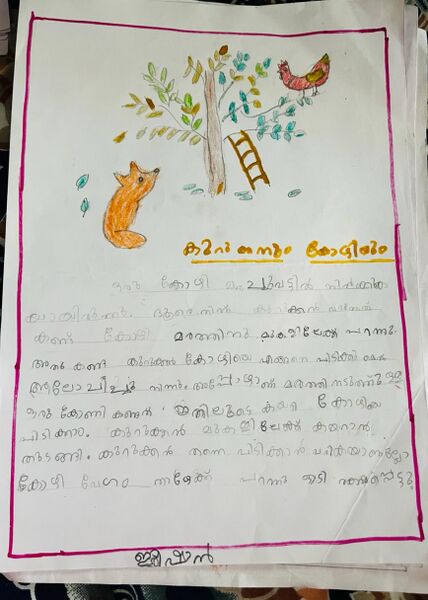 കുറുക്കനും കോഴിയും
ഒരു കോഴി മരച്ചുവട്ടിൽ നിൽക്കുക
യായിരുന്നു. ദൂരെനിന്ന് കുറുക്കൻ വരുന്നത്
കണ്ട് കോഴി മരത്തിനു മുകളിലേക്ക് പറന്നു.
അതു കണ്ട കുറുക്കൻ കോഴിയെ എങ്ങനെ പിടിക്കും എന്ന്
ആലോചിച്ചു നിന്നു. അപ്പോഴാണ് മരത്തിനടുത്തുള്ള
ഒരു കോണി കണ്ടത്. ഇതിലൂടെ കയറി കോഴിയെ
പിടിക്കാം. കുറുക്കൻ മുകളിലേക്ക് കയറാൻ
തുടങ്ങി. കുറുക്കൻ തന്നെ പിടിക്കാൻ വരികയാണല്ലോ
കോഴി വേഗം താഴേക്ക് പറന്നു ഓടി രക്ഷപ്പെട്ടു.
ഇഷാൻ